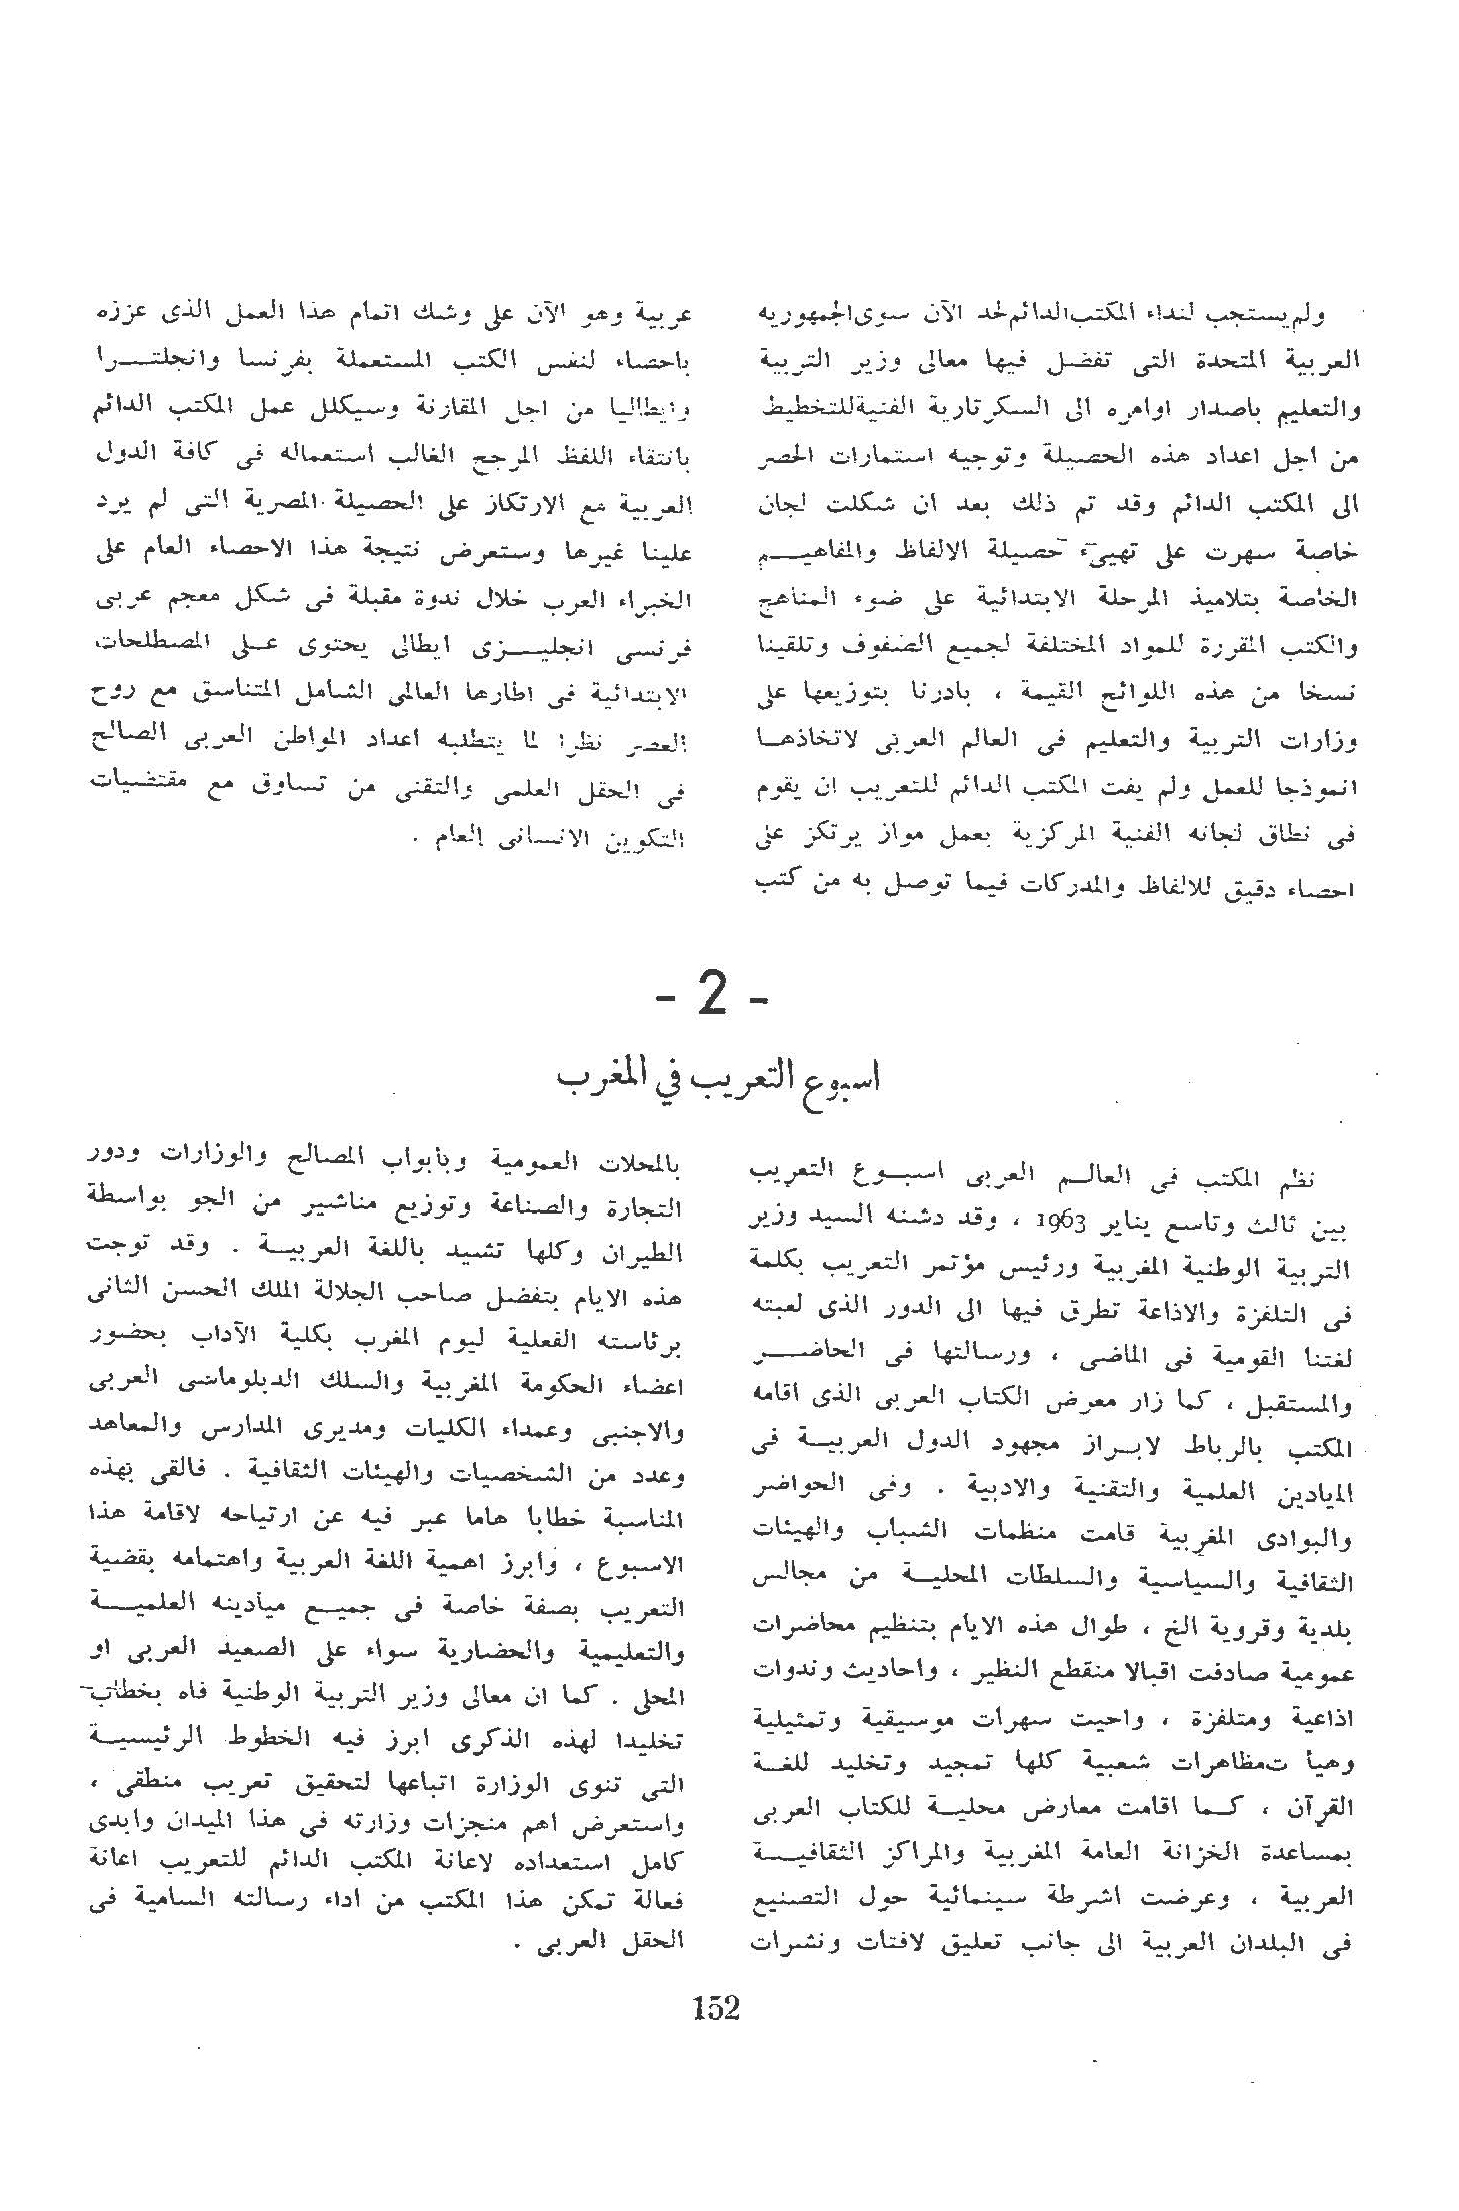 ولم يستجب لنداء المكتب الدائم لحد الآن سوى الجمهوريه
العربية المتحدة التى تفضل فيها معالى وزير التربية
والتعليم باصدار اوامره الى السكرتارية الفنية للتخطيط
من اجل اعداد هذه الحصيلة وتوجيه استمارات الحصر
الى المكتب الدائم وقد تم ذلك بعد ان شكلت لجان
خاصة سهرت على تهيىء حصيلة الالفاظ والمفاهيم
الخاصة بتلاميذ المرحلة الابتدائية على ضوء المناهج
والكتب المقررة للمواد المختلفة لجميع الصفوف وتلقينا
نسخا من هذه اللوائح القيمة ، بادرنا بتوزيعها على
وزارات التربية والتعليم فى العالم العربى لاتخاذها
انموذجا للعمل ولم يفت المكتب الدائم للتعريب ان يقوم
فى نطاق لجانه الفنية المركزية بعمل مواز يرتكز على
احصاء دقيق للالفاظ والمدركات فيما توصل به من كتب
عربية وهو الآن على وشك اتمام هذا العمل الذى عززه
باحصاء لنفس الكتب المستعملة بفرنسا وانجلترا
وايطاليا من اجل المقارنة وسيكلل عمل المكتب الدائم
بانتقاء اللفظ المرجح الغالب استعماله فى كافة الدول
العربية مع الارتكاز على الحصيلة المصرية التى لم يرد
علينا غيرها وستعرض نتيجة هذا الاحصاء العام على
الخبراء العرب خلال ندوة مقبلة فى شكل معجم عربى
فرنسى انجليزى ايطالى يحتوى على المصطلحات
الابتدائية فى اطارها العالمى الشامل المتناسق مع روح
العصر نظرا لما يتطلبه اعداد المواطن العربى الصالح
فى الحقل العلمى والتقنى من تساوق مع مقتضيات
التكوين الانسانى العام .
- 2 -
اسبوع التعريب في المغرب
نظم المكتب فى العالم العربى اسبوع التعريب
بين ثالث وتاسع يناير 1963 ، وقد دشنه السيد وزير
التربية الوطنية المغربية ورئيس مؤتمر التعريب بكلمة
فى التلفزة والاذاعة تطرق فيها الى الدور الذى لعبته
لغتنا القومية فى الماضى ، ورسالتها فى الحاضر
والمستقبل ، كما زار معرض الكتاب العربى الذى اقامه
المكتب بالرباط لابراز مجهود الدول العربية فى
الميادين العلمية والتقنية والادبية . وفى الحواضر
والبوادى المغربية قامت منظمات الشباب والهيئات
الثقافية والسياسية والسلطات المحلية من مجالس
بلدية وقروية الخ ، طوال هذه الايام بتنظيم محاضرات
عمومية صادفت اقبالا منقطع النظير ، واحاديث وندوات
اذاعية ومتلفزة ، واحيت سهرات موسيقية وتمثيلية
وهيأ تمظاهرات شعبية كلها تمجيد وتخليد للغة
القرآن ، كما اقامت معارض محلية للكتاب العربى
بمساعدة الخزانة العامة المغربية والمراكز الثقافية
العربية ، وعرضت اشرطة سينمائية حول التصنيع
فى البلدان العربية الى جانب تعليق لافتات ونشرات
بالمحلات العمومية وبابواب المصالح والوزارات ودور
التجارة والصناعة وتوزيع مناشير من الجو بواسطة
الطيران وكلها تشيد باللغة العربية . وقد توجت
هذه الايام بتفضل صاحب الجلالة الملك الحسن الثانى
برئاسته الفعلية ليوم المغرب بكلية الآداب بحضور
اعضاء الحكومة المغربية والسلك الدبلوماسى العربى
والاجنبى وعمداء الكليات ومديرى المدارس والمعاهد
وعدد من الشخصيات والهيئات الثقافية . فالقى بهذه
المناسبة خطابا هاما عبر فيه عن ارتياحه لاقامة هذا
الاسبوع ، وابرز اهمية اللغة العربية واهتمامه بقضية
التعريب بصفة خاصة فى جميع ميادينه العلمية
والتعليمية والحضارية سواء على الصعيد العربى او
المحلى . كما ان معالى وزير التربية الوطنية فاه بخطاب
تخليدا لهذه الذكرى ابرز فيه الخطوط الرئيسية
التى تنوى الوزارة اتباعها لتحقيق تعريب منطقى ،
واستعرض اهم منجزات وزارته فى هذا الميدان وابدى
كامل استعداده لاعانة المكتب الدائم للتعريب اعانة
فعالة تمكن هذا المكتب من اداء رسالته السامية فى
الحقل العربى .
152